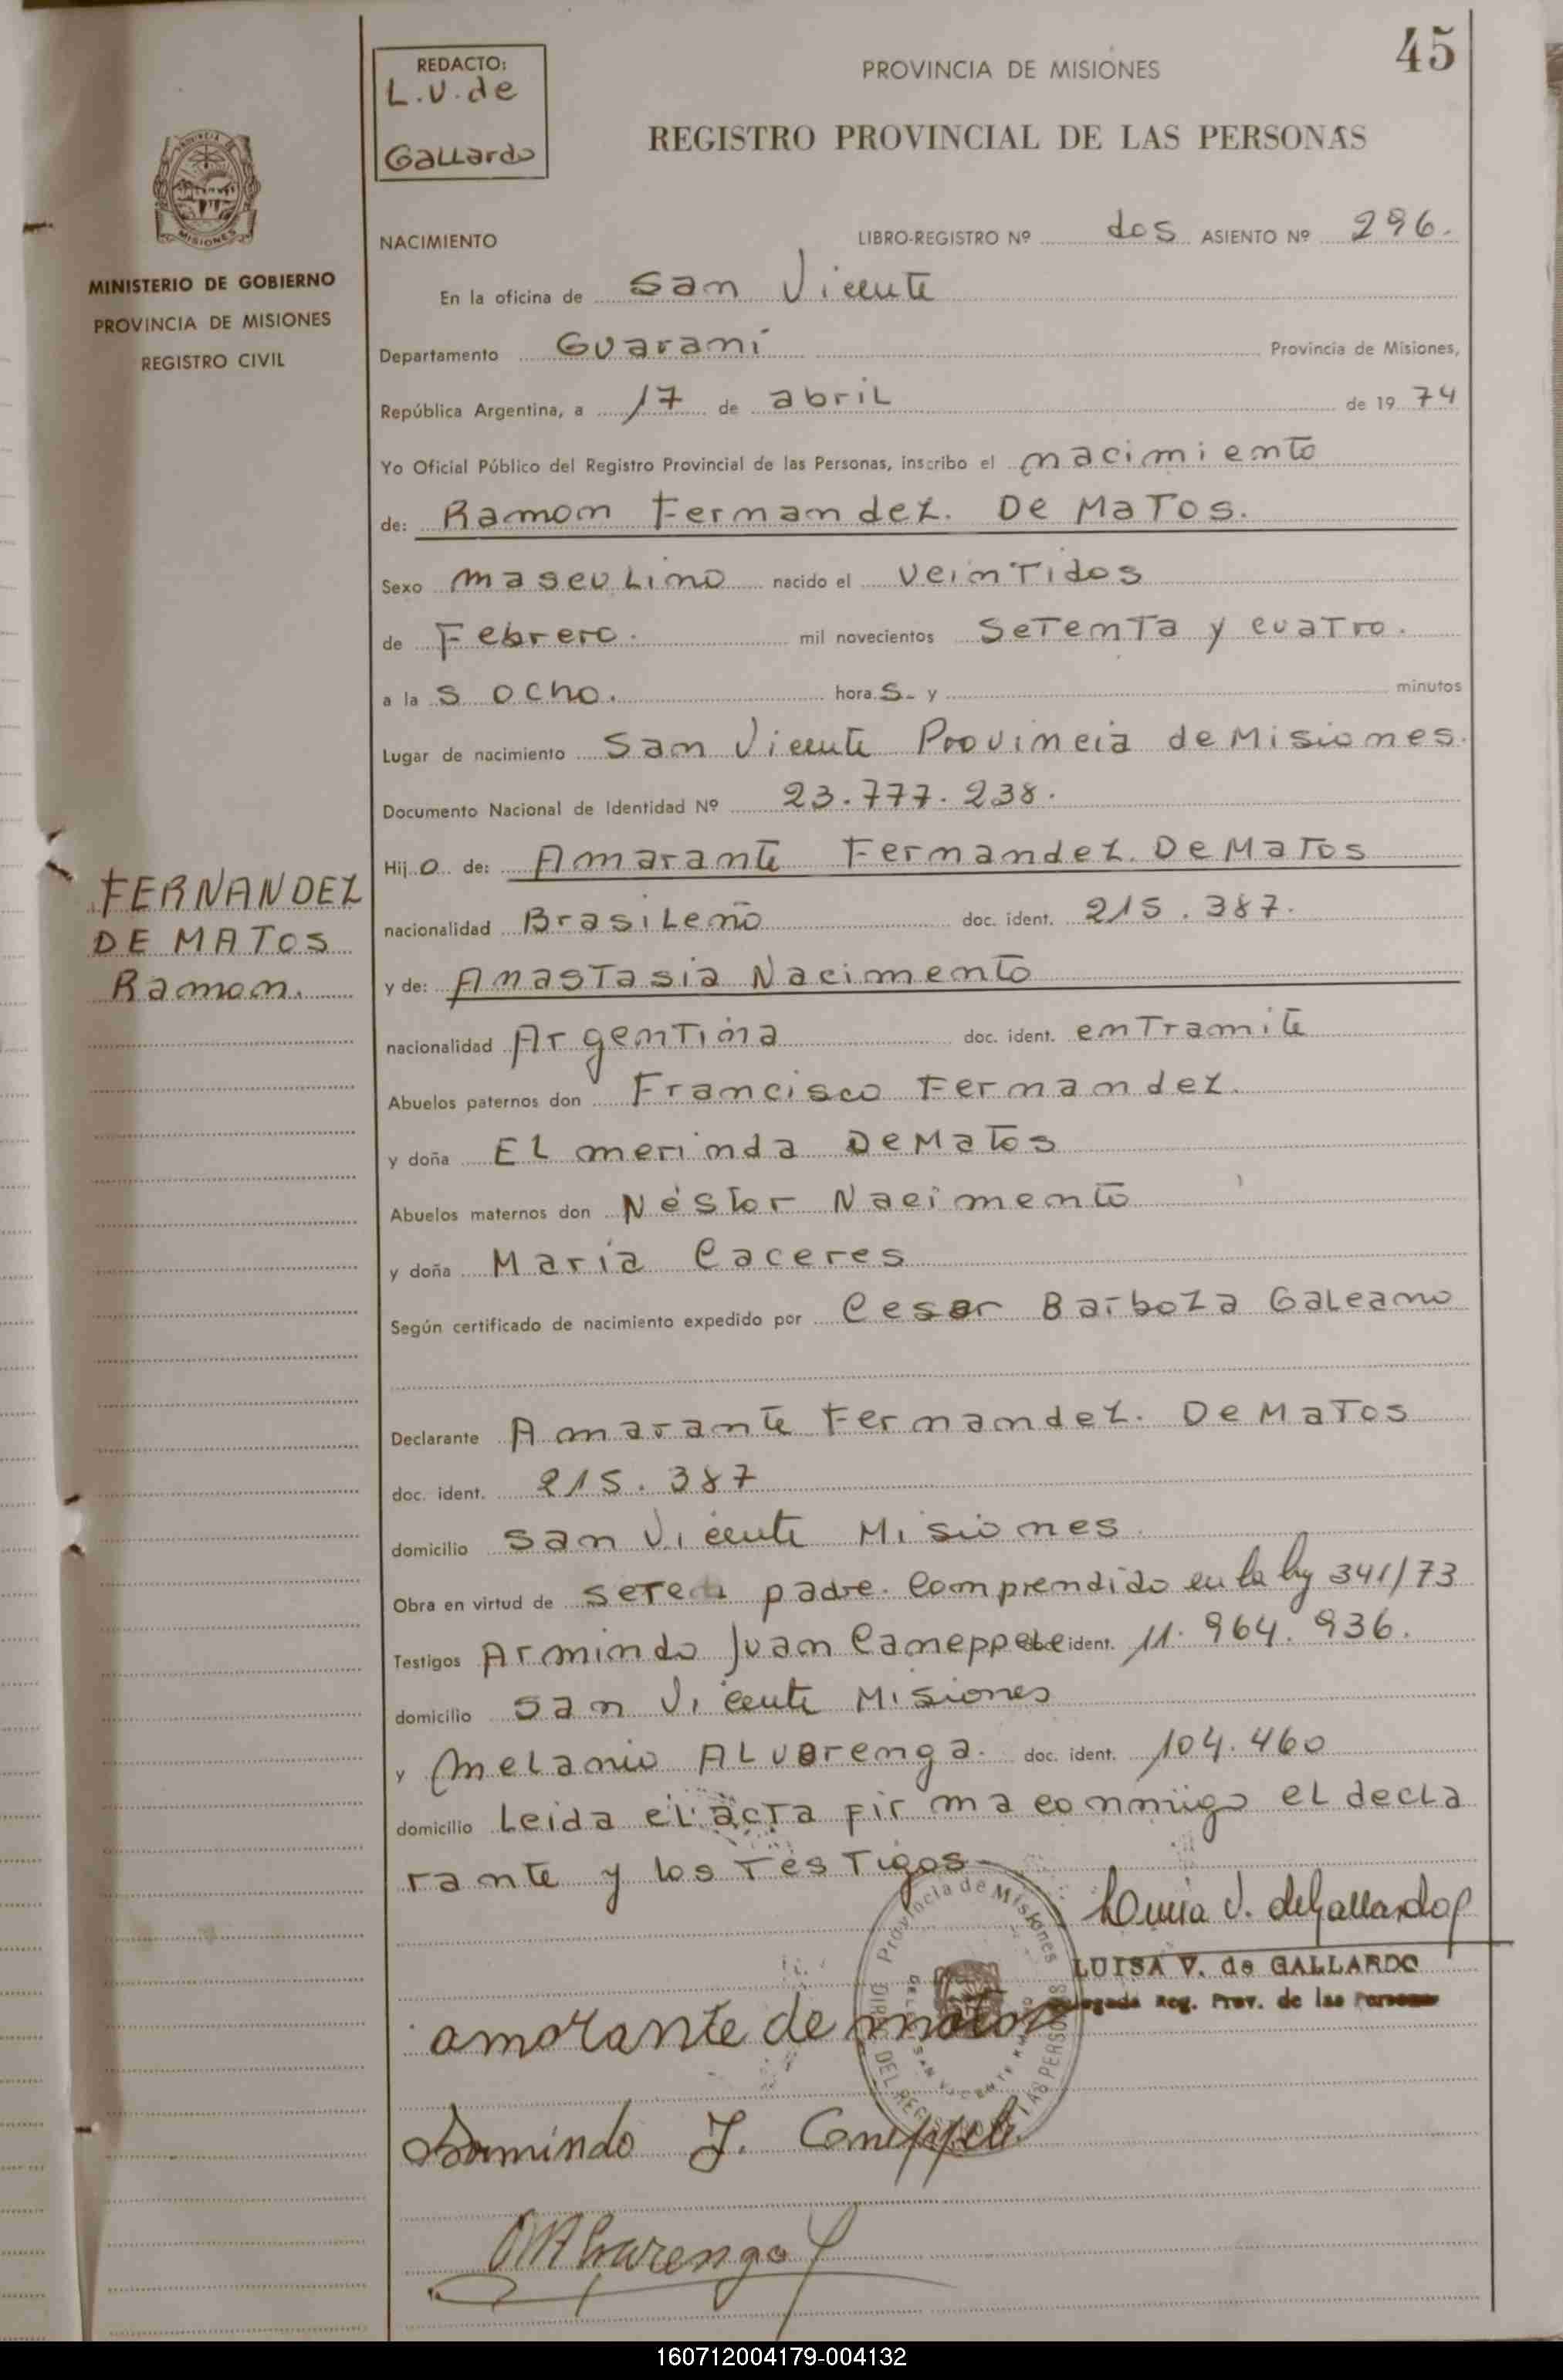 45
REDACTO:
L.V. de
Gallardo
PROVINCIA DE MISIONES
REGISTRO PROVINCIAL DE LAS PERSONAS
PROVINCIA
MISIONES
MINISTERIO DE GOBIERNO
PROVINCIA DE MISIONES
REGISTRO CIVIL
NACIMIENTO
LIBRO-REGISTRO Nº dos ASIENTO Nº 296.
En la oficina de San Vicente
Departamento Guarani Provincia de Misiones,
República Argentina, a 17 de abril de 1974
Yo Oficial Público del Registro Provincial de las Personas, inscribo el nacimiento
de: Ramon Fernandez. De Matos.
Sexo masculino nacido el veintidos
de Febrero. mil novecientos setenta y cuatro.
a la s ocho. hora s- y minutos
Lugar de nacimiento San Vicente Provincia de Misiones.
Documento Nacional de Identidad Nº 23.777.238.
Hij o de: Amarante Fernandez. De Matos
nacionalidad Brasileño doc. ident. 215.387.
y de: Anastasia Nacimento
nacionalidad Argentina doc. ident. en Tramite
Abuelos paternos don Francisco Fernandez.
y doña El merinda De Matos
Abuelos maternos don Néstor Nacimento
y doña Maria Caceres
Según certificado de nacimiento expedido por Cesar Barboza Galeano
FERNANDEZ
DE MATOS
Ramon.
Declarante Amarante Fernandez. De Matos
doc. ident. 215.387
domicilio San Vicente Misiones
Obra en virtud de ser el padre. Comprendido en la ley 341/73
Testigos Armindo Juan Caneppele ident. 11.964.936.
domicilio San Vicente Misiones
y Melanio Alvarenga. doc. ident. 104.460
domicilio Leida el acta firma conmigo el decla
rante y los Testigos
Provincia de Misiones
Luisa V. de Gallardo
LUISA V. de GALLARDO
Reg. Prov. de las Personas
amarante de matos
Armindo J. Caneppele
Alvarenga
160712004179-004132